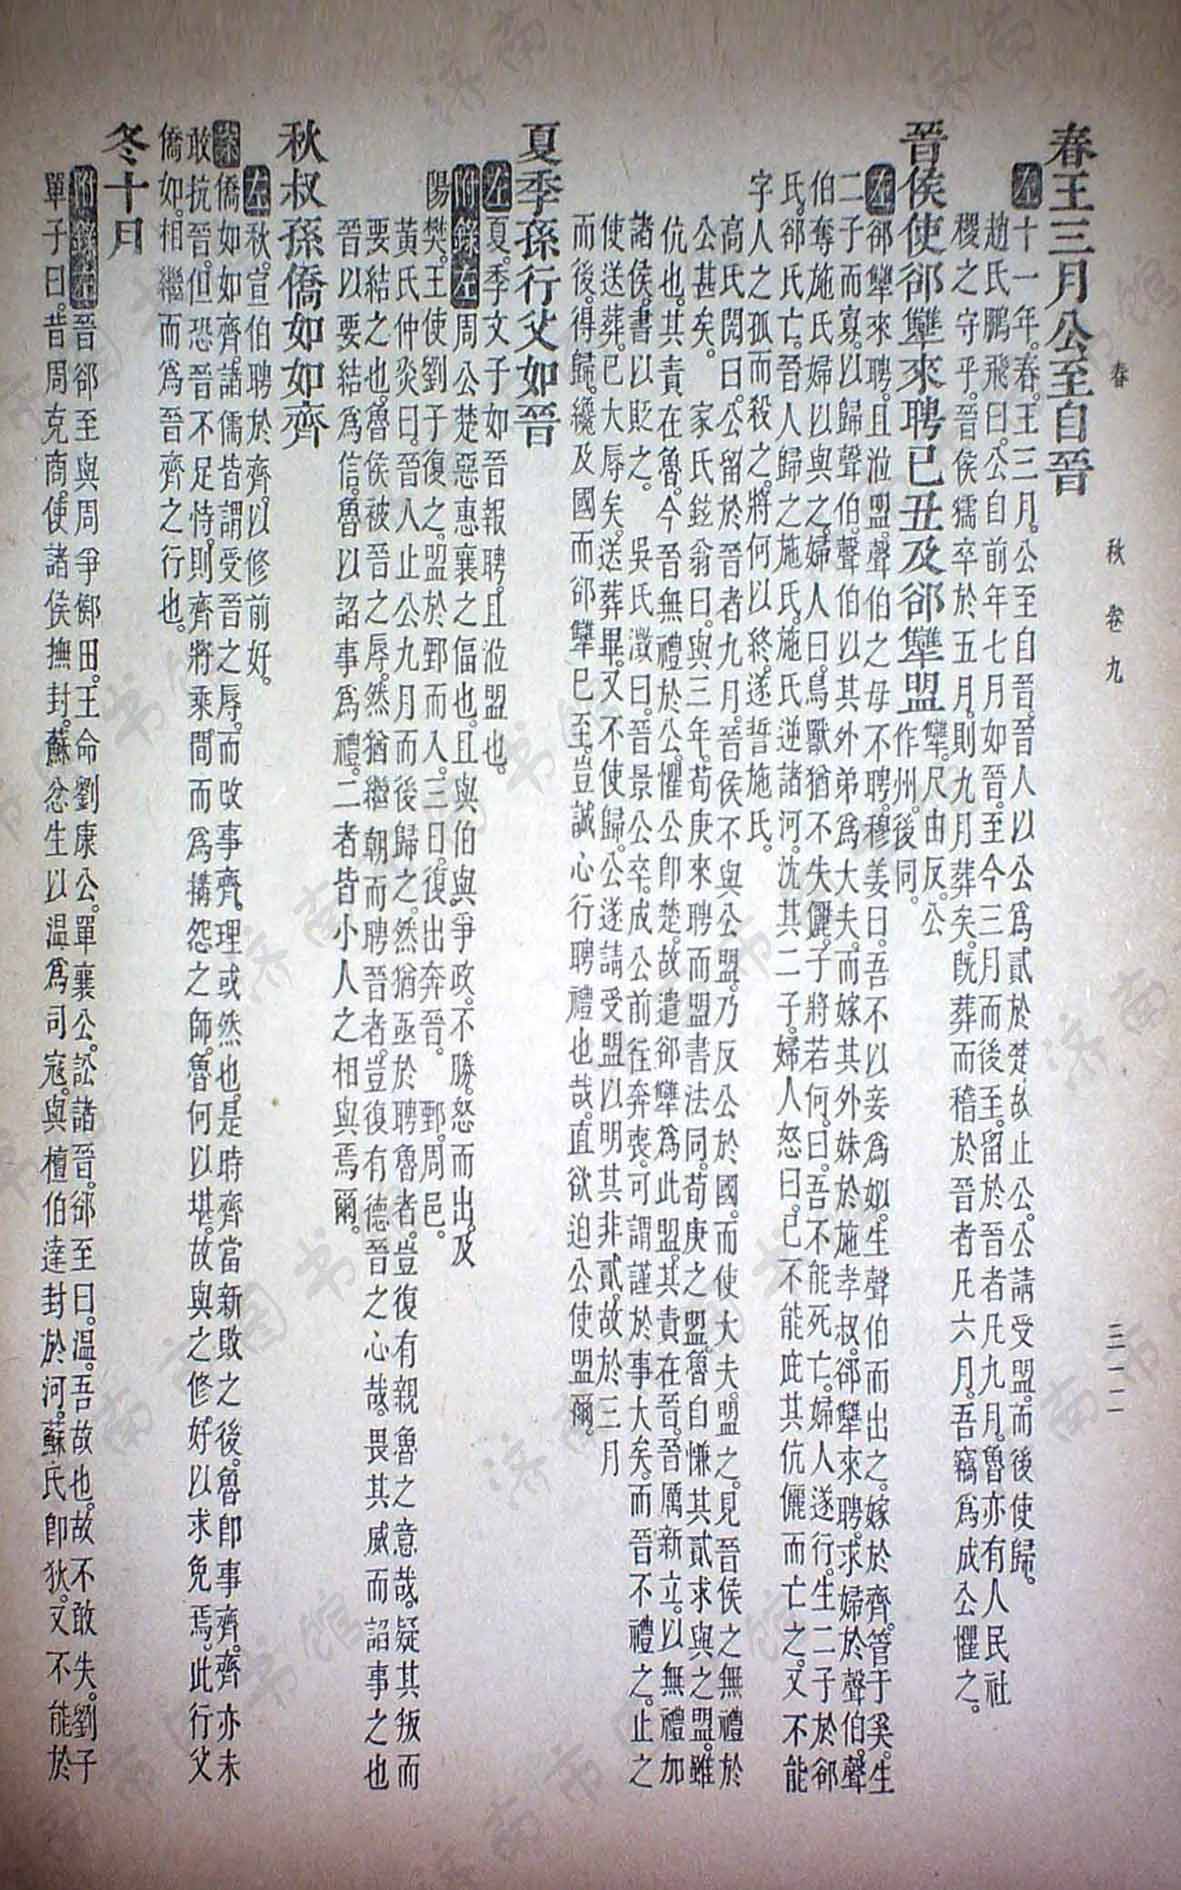 春秋 卷九 三一二
春王三月公至自晉
左十一年。春。王三月。公至自晉。晉人以公爲貳於楚。故止公。公請受盟。而後使歸。
趙氏鵬飛曰。公自前年七月如晉。至今三月而後至。留於晉者凡九月。魯亦有人民社
稷之守乎。晉侯獳卒於五月。則九月葬矣。旣葬而稽於晉者凡六月。吾竊爲成公懼之。
晉侯使郤犫來聘已丑及郤犫盟犫。尺由反。公作州。後同。
左郤犫來聘。且涖盟。聲伯之母不聘。穆姜曰。吾不以妾爲姒。生聲伯而出之。嫁於齊。管于奚。生
二子而寡。以歸聲伯。聲伯以其外弟爲大夫。而嫁其外妹於施孝叔。郤犫來聘。求婦於聲伯。聲
伯奪施氏婦以與之。婦人曰。鳥獸猶不失儷。子將若何。曰。吾不能死亡。婦人遂行。生二子於郤
氏。郤氏亡。晉人歸之施氏。施氏逆諸河。沈其二子。婦人怒曰。已不能庇其伉儷而亡之。又不能
字人之孤而殺之。將何以終。遂誓施氏。
高氏閌曰。公留於晉者九月。晉侯不與公盟。乃反公於國。而使大夫盟之。見晉侯之無禮於
公甚矣。 家氏鉉翁曰。與三年。荀庚來聘而盟書法同。荀庚之盟。魯自慊其貳。求與之盟。雖
伉也。其責在魯。今晉無禮於公。懼公卽楚。故遣郤犫爲此盟。其責在晉。晉厲新立。以無禮加
諸侯。書以貶之。 吳氏澂曰。晉景公卒。成公前往奔喪。可謂謹於事大矣。而晉不禮之。止之
使送葬。已大辱矣。送葬畢。又不使歸。公遂請受盟以明其非貳。故於三月
而後。得歸。纔及國而郤犫已至。豈誠心行聘禮也哉。直欲迫公使盟爾。
夏季孫行父如晉
左夏。季文子如晉報聘。且涖盟也。
附錄左周公楚惡惠襄之偪也。且與伯與爭政。不勝。怒而出。及
陽樊。王使劉子復之。盟於鄄而入。三日。復出奔晉。 鄄。周邑。
黃氏仲炎曰。晉人止公九月而後歸之。然猶亟於聘魯者。豈復有親魯之意哉。疑其叛而
要結之也。魯侯被晉之辱。然猶繼朝而聘晉者。豈復有德晉之心哉。畏其威而諂事之也
晉以要結爲信。魯以諂事爲禮。二者皆小人之相與焉爾。
秋叔孫僑如如齊
左秋。宣伯聘於齊。以修前好。
案僑如如齊。諸儒皆謂受晉之辱。而改事齊。理或然也。是時齊當新敗之後。魯卽事齊。齊亦未
敢抗晉。但恐晉不足恃。則齊將乘間而爲搆怨之師。魯何以堪。故與之修好以求免焉。此行父
僑如。相繼而爲晉齊之行也。
冬十月
附錄左晉郤至與周爭鄇田。王命劉康公。單襄公。訟諸晉。郤至曰。溫。吾故也。故不敢失。劉子
單子曰。昔周克商。使諸侯撫封。蘇忿生以溫爲司寇。與檀伯達封於河。蘇氏卽狄。又不能於